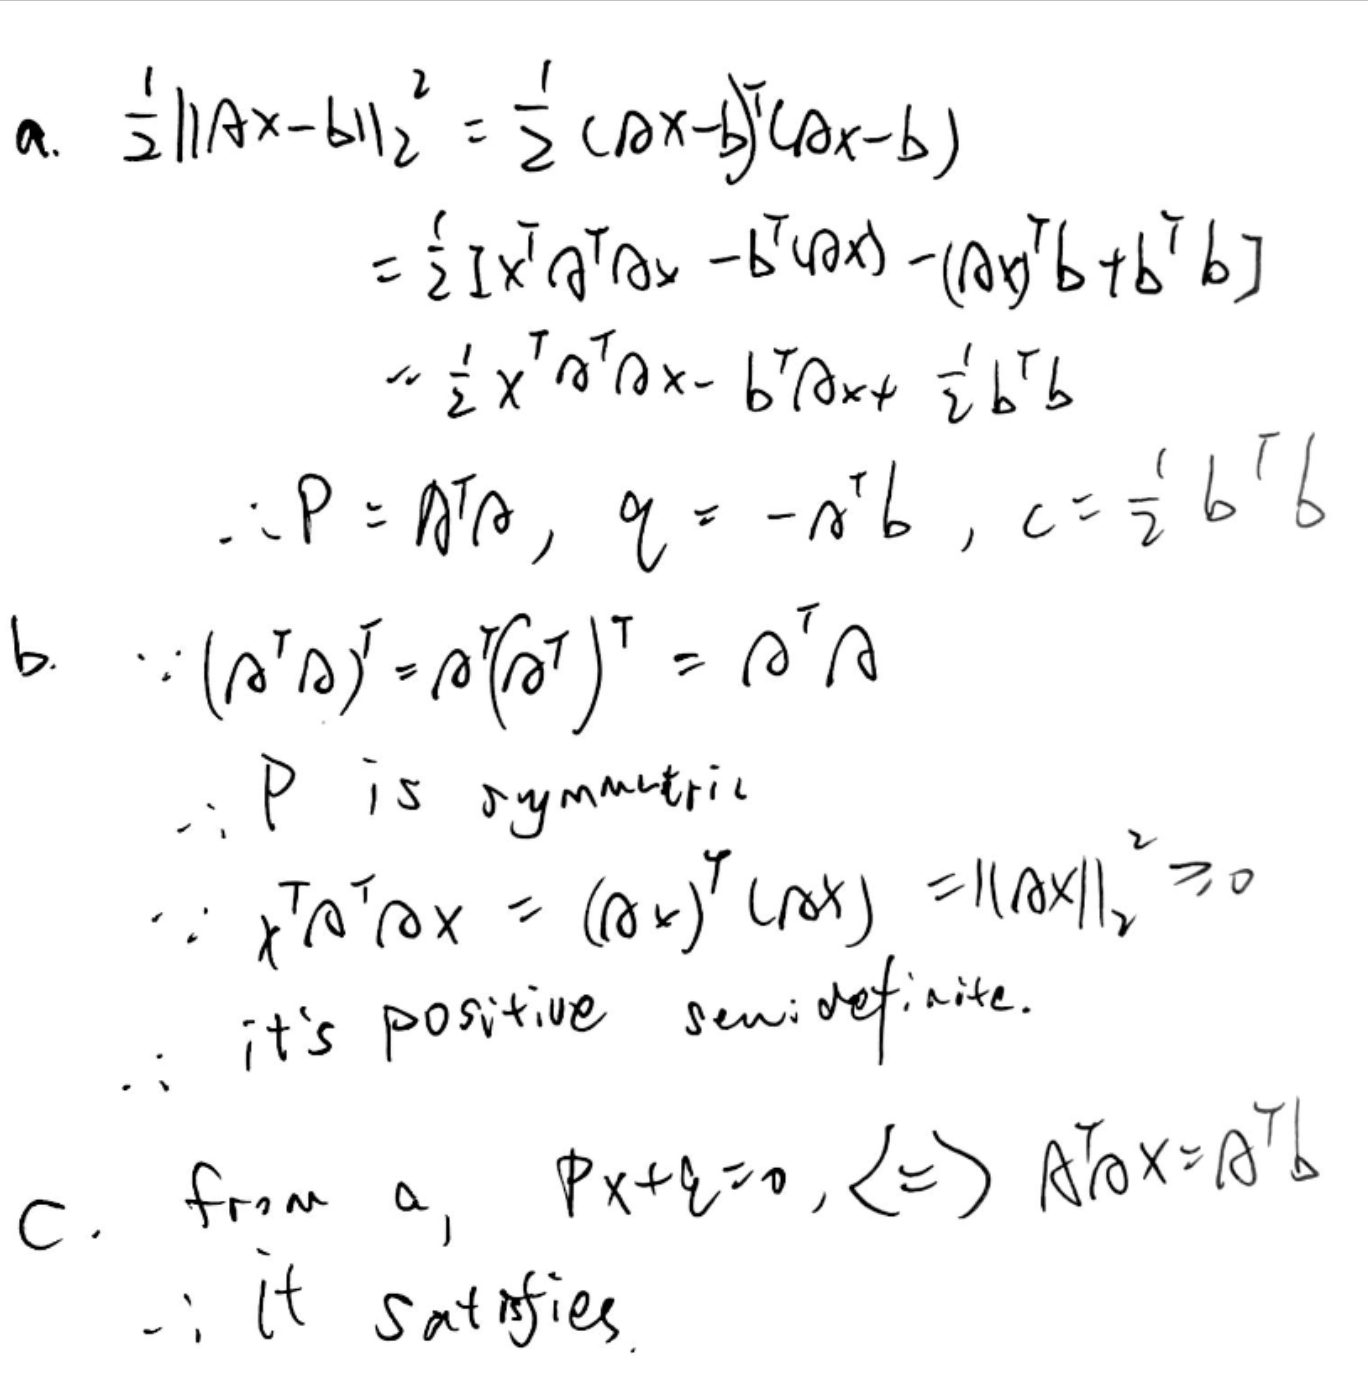 a. ½||Ax-b||₂² = ½ (Ax-b)ᵀ(Ax-b)
= ½ [xᵀAᵀAx -bᵀ(Ax) -(Ax)ᵀb +bᵀb]
= ½ xᵀAᵀAx - bᵀAx + ½ bᵀb
∴ P = AᵀA, q = -Aᵀb , c = ½ bᵀb
b. ∵ (AᵀA)ᵀ = Aᵀ(Aᵀ)ᵀ = AᵀA
∴ P is symmetric
∵ xᵀAᵀAx = (Ax)ᵀ(Ax) = ||Ax||₂² ≥ 0
∴ it's positive semidefinite.
c. from a, Px+q=0, <=> AᵀAx = Aᵀb
∴ it satisfies.